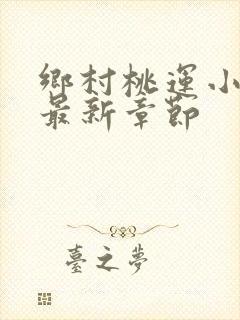 鄉村桃運小
最新章節
臺之夢